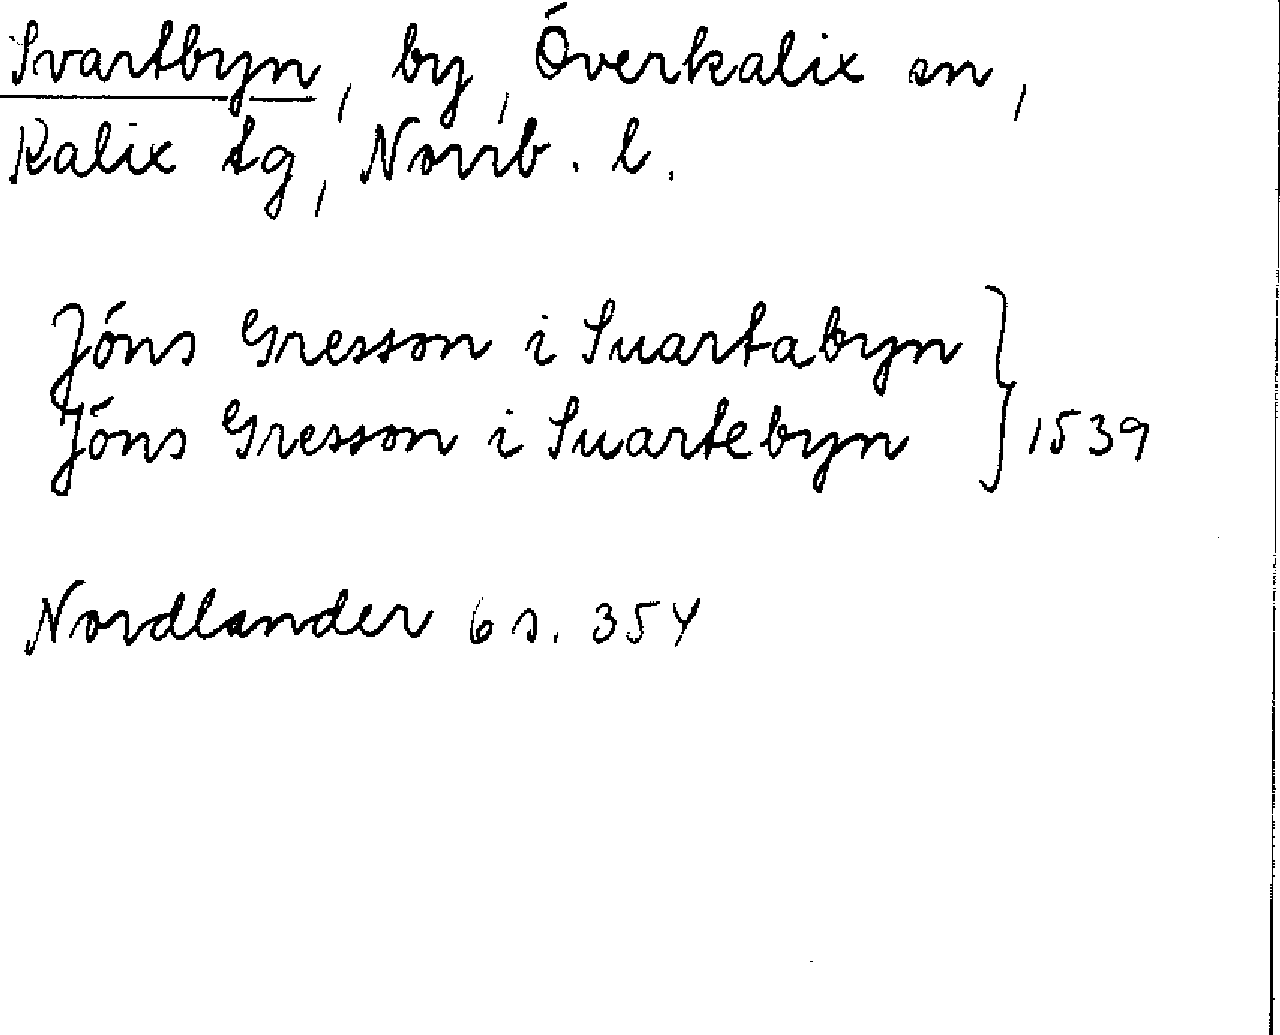 Svartbyn, by, Överkalix sn,
Kalix tg, Norrb. l.
Jöns Gresson i Suartabyn } 1539
Jöns Gresson i Suartebyn
Nordlander 6 s. 354